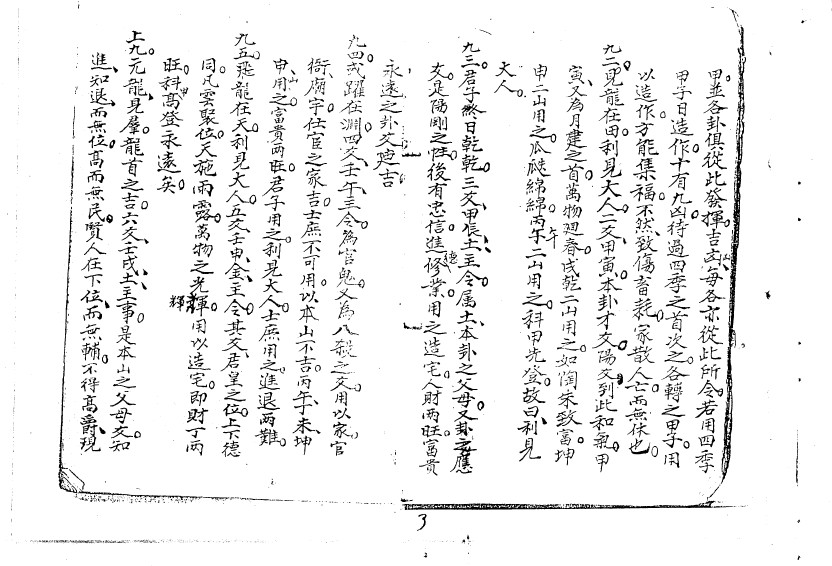 甲並各卦俱從此發揮吉凶每各亦從此所令若用四季
甲子日造作十有九凶待過四季之首次之各轉之甲子用
以造作方能集福不然致傷畜耗家散人亡而無休也
九二見龍在田利見大人二爻甲寅本卦才爻陽爻到此和氣甲
寅又為月建之首萬物迴春戌乾二山用之如陶朱致富坤
申二山用之瓜瓞綿綿丙午二山用之科甲先登故曰利見
大人
九三君子終日乾乾三爻甲辰土主令属土本卦之父母又卦之應
爻是陽剛之性後有忠信進德修業用之造宅人財兩旺富貴
永遠之卦爻
九四或躍在淵四爻壬午主令為官鬼又為八殺之爻用以家官
衙廟宇仕宦之家吉士庶不可用以本山不吉丙午未坤
申山用之富貴兩旺君子用之利見大人士庶用之進退兩難
九五飛龍在天利見大人五爻壬申金主令其爻君皇之位上下德
同凡雲聚位天施雨露萬物之光輝用以造宅即財丁兩
旺科甲高登永遠矣
上九亢龍見羣龍首之吉六爻壬戌土主事是本山之父母爻知
進知退而無位高而無民賢人在下位而無輔不得高爵現
3